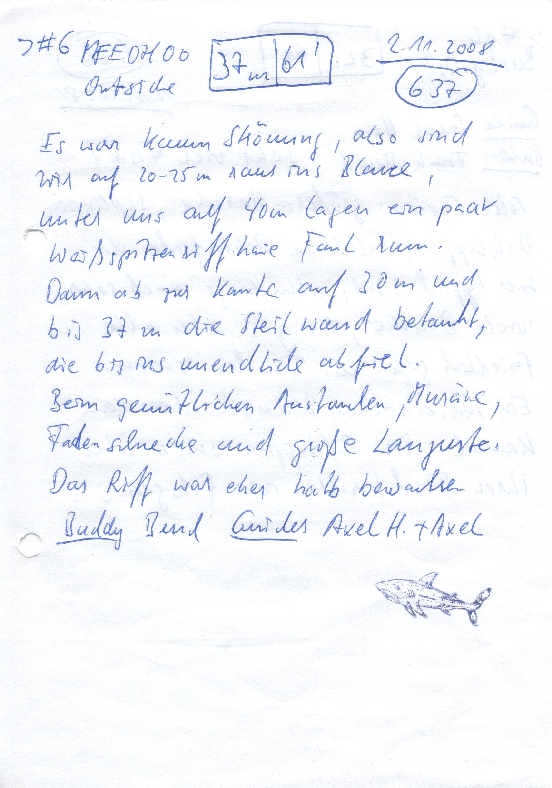 #6 MEEDHOO 37m 61' 2.11.2008
Outside 637
Es war kaum Strömung, also sind
wir auf 20-25m raus ins Blaue,
unter uns auf 40m lagen ein paar
Weißspitzenriffhaie Faul rum.
Dann ab zur Kante auf 30m und
bis 37m die Steilwand betaucht,
die bis ins unendliche abfiel.
Beim gemütlichen Austauchen, Muräne,
Fadenschnecke und große Languste.
Das Riff war eher halb bewachsen
Buddy Bernd Guides Axel H. + Axel